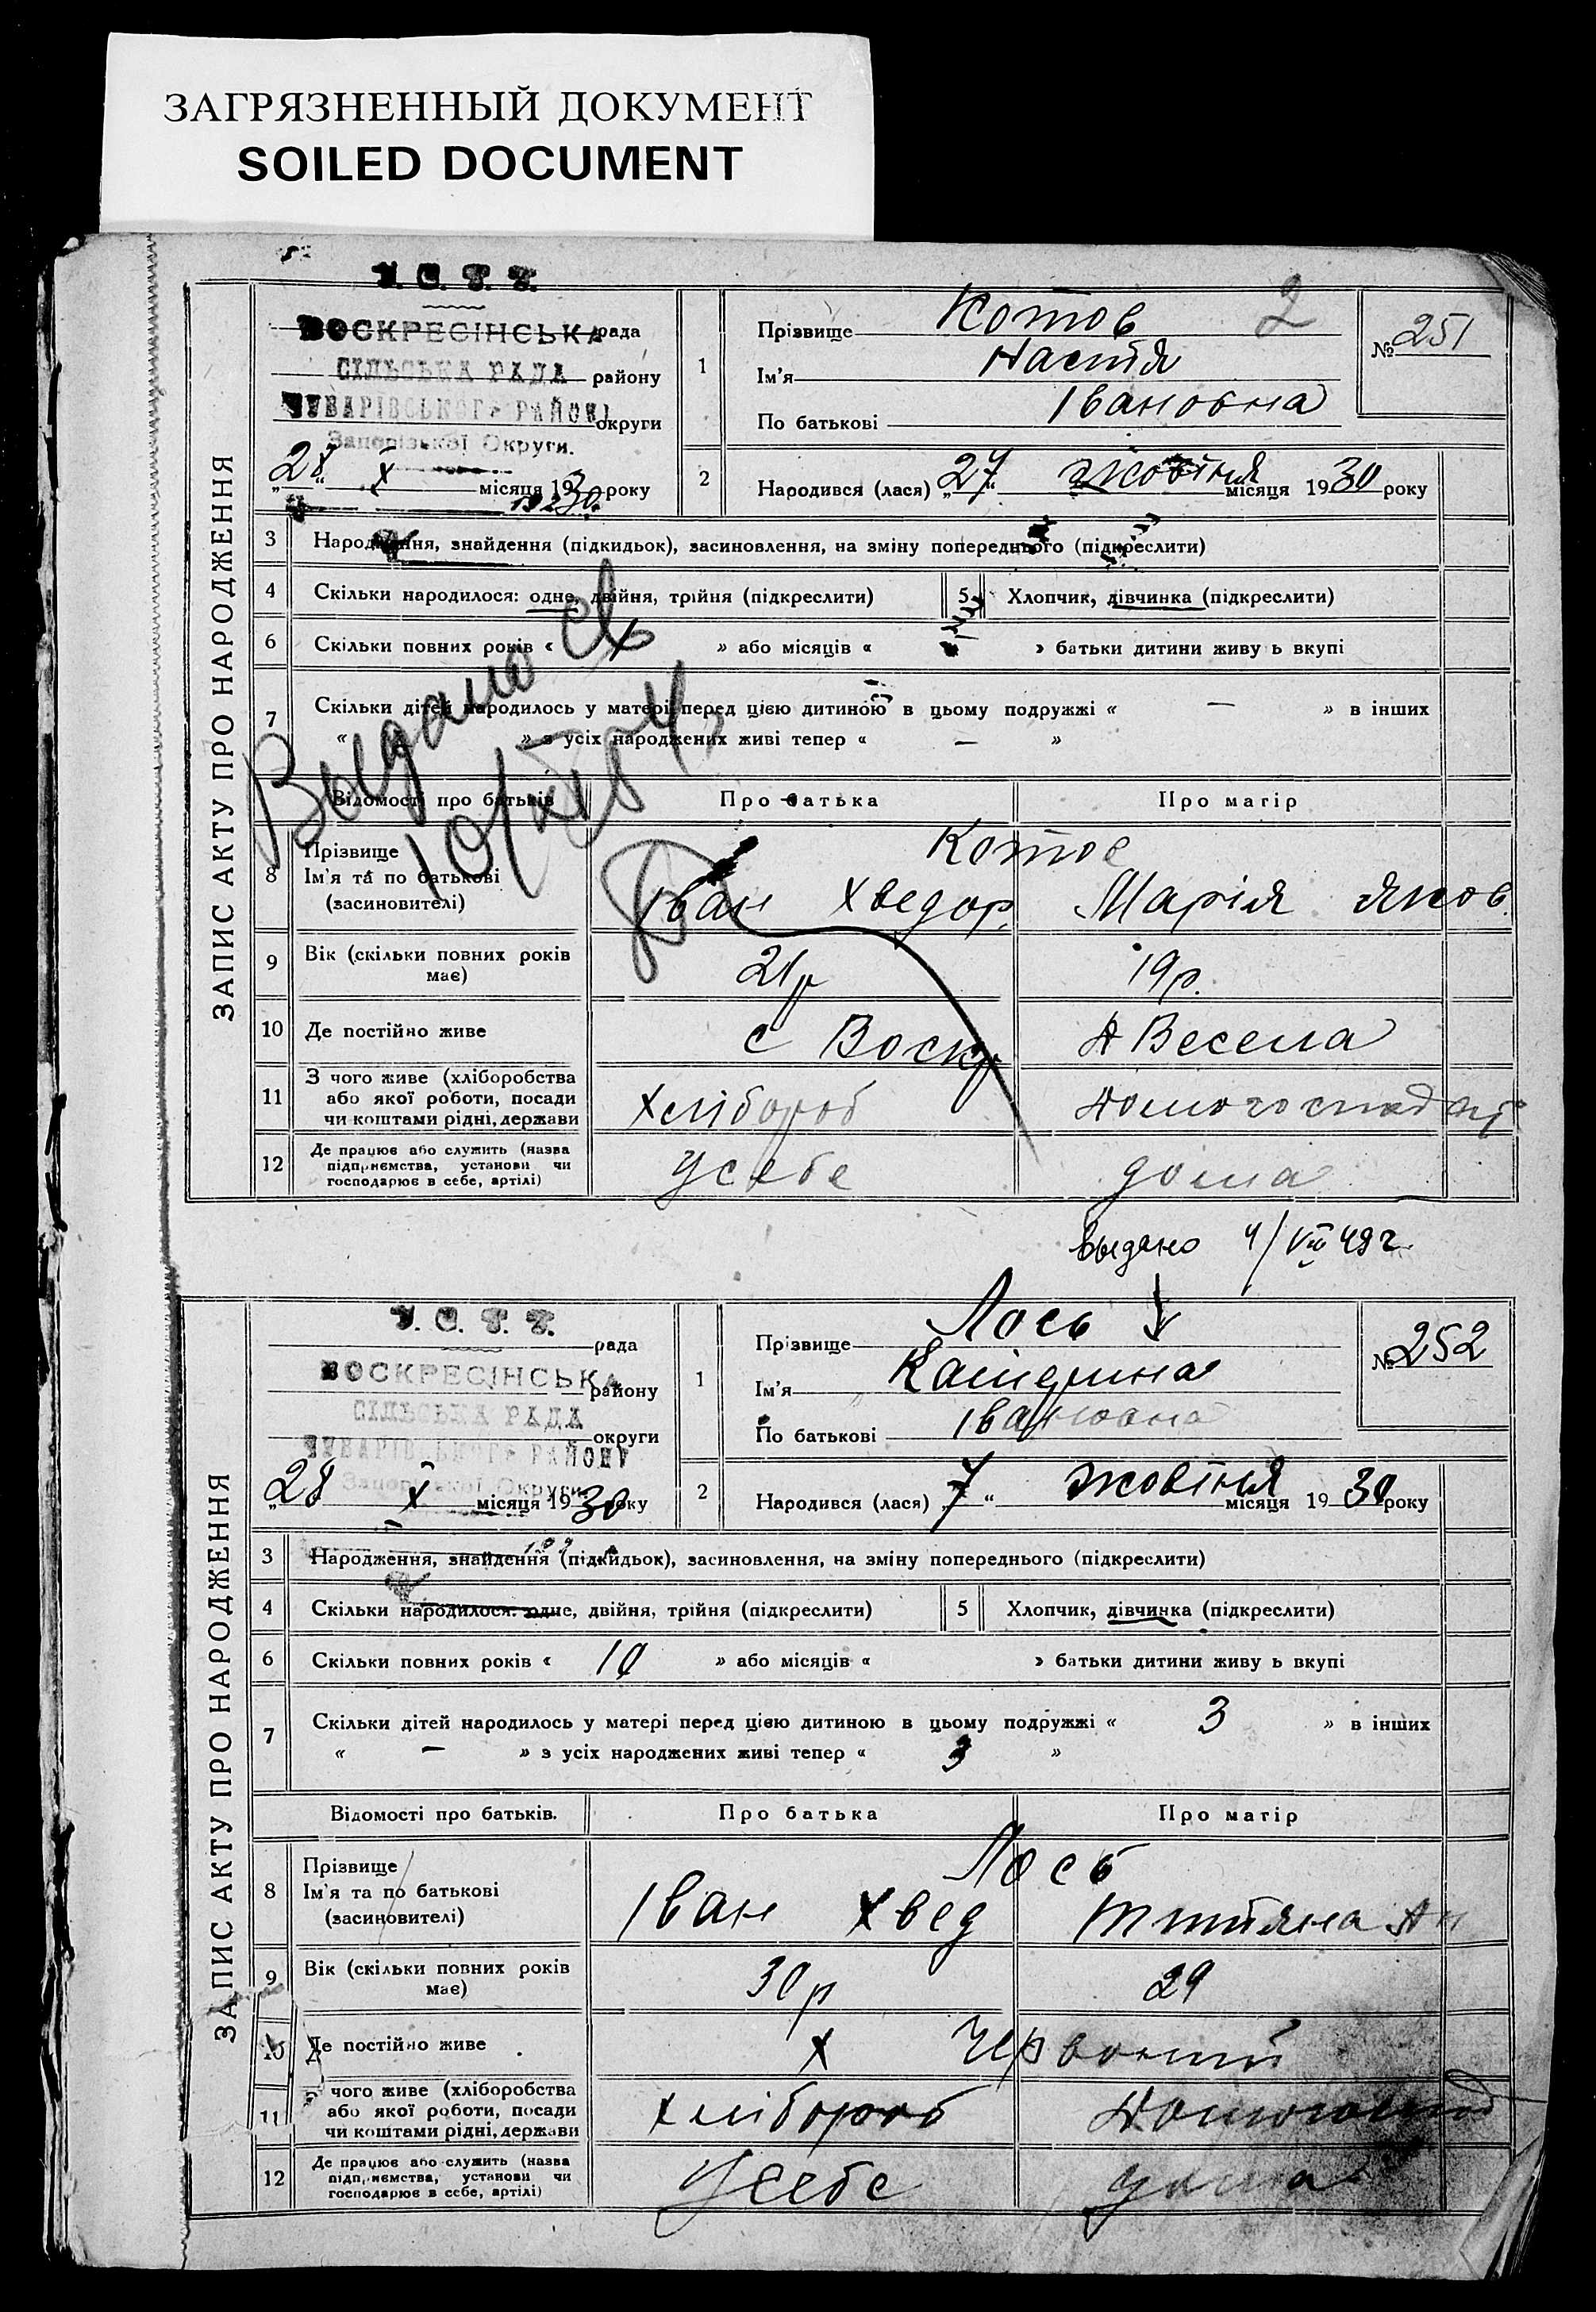 ЗАГРЯЗНЕННЫЙ ДОКУМЕНТ
SOILED DOCUMENT
У. С. Р. Р.
ЗАПИС АКТУ ПРО НАРОДЖЕННЯ
ВОСКРЕСІНСЬКА рада
СІЛЬСЬКА РАДА району
ЧУБАРІВСЬКОГО РАЙОНУ округи
Запорізької Округи.
„28“ X місяця 1930 року
1 Прізвище Котов 2
Ім'я Настя
По батькові Івановна
№ 251
2 Народився (лася) „27“ жовтня місяця 1930 року
3 Народження, знайдення (підкидьок), засиновлення, на зміну попереднього (підкреслити)
4 Скільки народилося: одне, двійня, трійня (підкреслити) 5 Хлопчик, дівчинка (підкреслити)
6 Скільки повних років « 1 » або місяців « — » батьки дитини живу ь вкупі
7 Скільки дітей народилось у матері перед цією дитиною в цьому подружжі « — » в інших
« » з усіх народжених живі тепер « — »
Выдано
Відомості про батьків Про батька Про матір
8 Прізвище Котов
Ім'я та по батькові Іван Хведор. Марія Яков.
(засиновителі)
9 Вік (скільки повних років має) 21р 19р.
10 Де постійно живе с Воскр А Весела
11 З чого живе (хліборобства або якої роботи, посади чи коштами рідні, держави Хлібороб Домогосподар
12 Де працює або служить (назва підприємства, установи чи господарює в себе, артілі) У себе дома
выдано 4/VIII 49 г.
ЗАПИС АКТУ ПРО НАРОДЖЕННЯ
У. С. Р. Р. рада
ВОСКРЕСІНСЬКА району
СІЛЬСЬКА РАДА округи
ЧУБАРІВСЬКОГО РАЙОНУ
Запорізької Округи.
„28“ X місяця 1930 року
1 Прізвище Лось
Ім'я Катерина
По батькові Івановна
№ 252
2 Народився (лася) „7“ жовтня місяця 1930 року
3 Народження, знайдення (підкидьок), засиновлення, на зміну попереднього (підкреслити)
4 Скільки народилося: одне, двійня, трійня (підкреслити) 5 Хлопчик, дівчинка (підкреслити)
6 Скільки повних років « 10 » або місяців « » батьки дитини живу ь вкупі
7 Скільки дітей народилось у матері перед цією дитиною в цьому подружжі « 3 » в інших
« — » з усіх народжених живі тепер « 3 »
Відомості про батьків. Про батька Про матір
8 Прізвище Лось
Ім'я та по батькові Іван Хвед Титяна Ан
(засиновителі)
9 Вік (скільки повних років має) 30р 29
10 Де постійно живе х Червоний
11 З чого живе (хліборобства або якої роботи, посади чи коштами рідні, держави Хлібороб Домогоспод
12 Де працює або служить (назва підприємства, установи чи господарює в себе, артілі) У себе дома